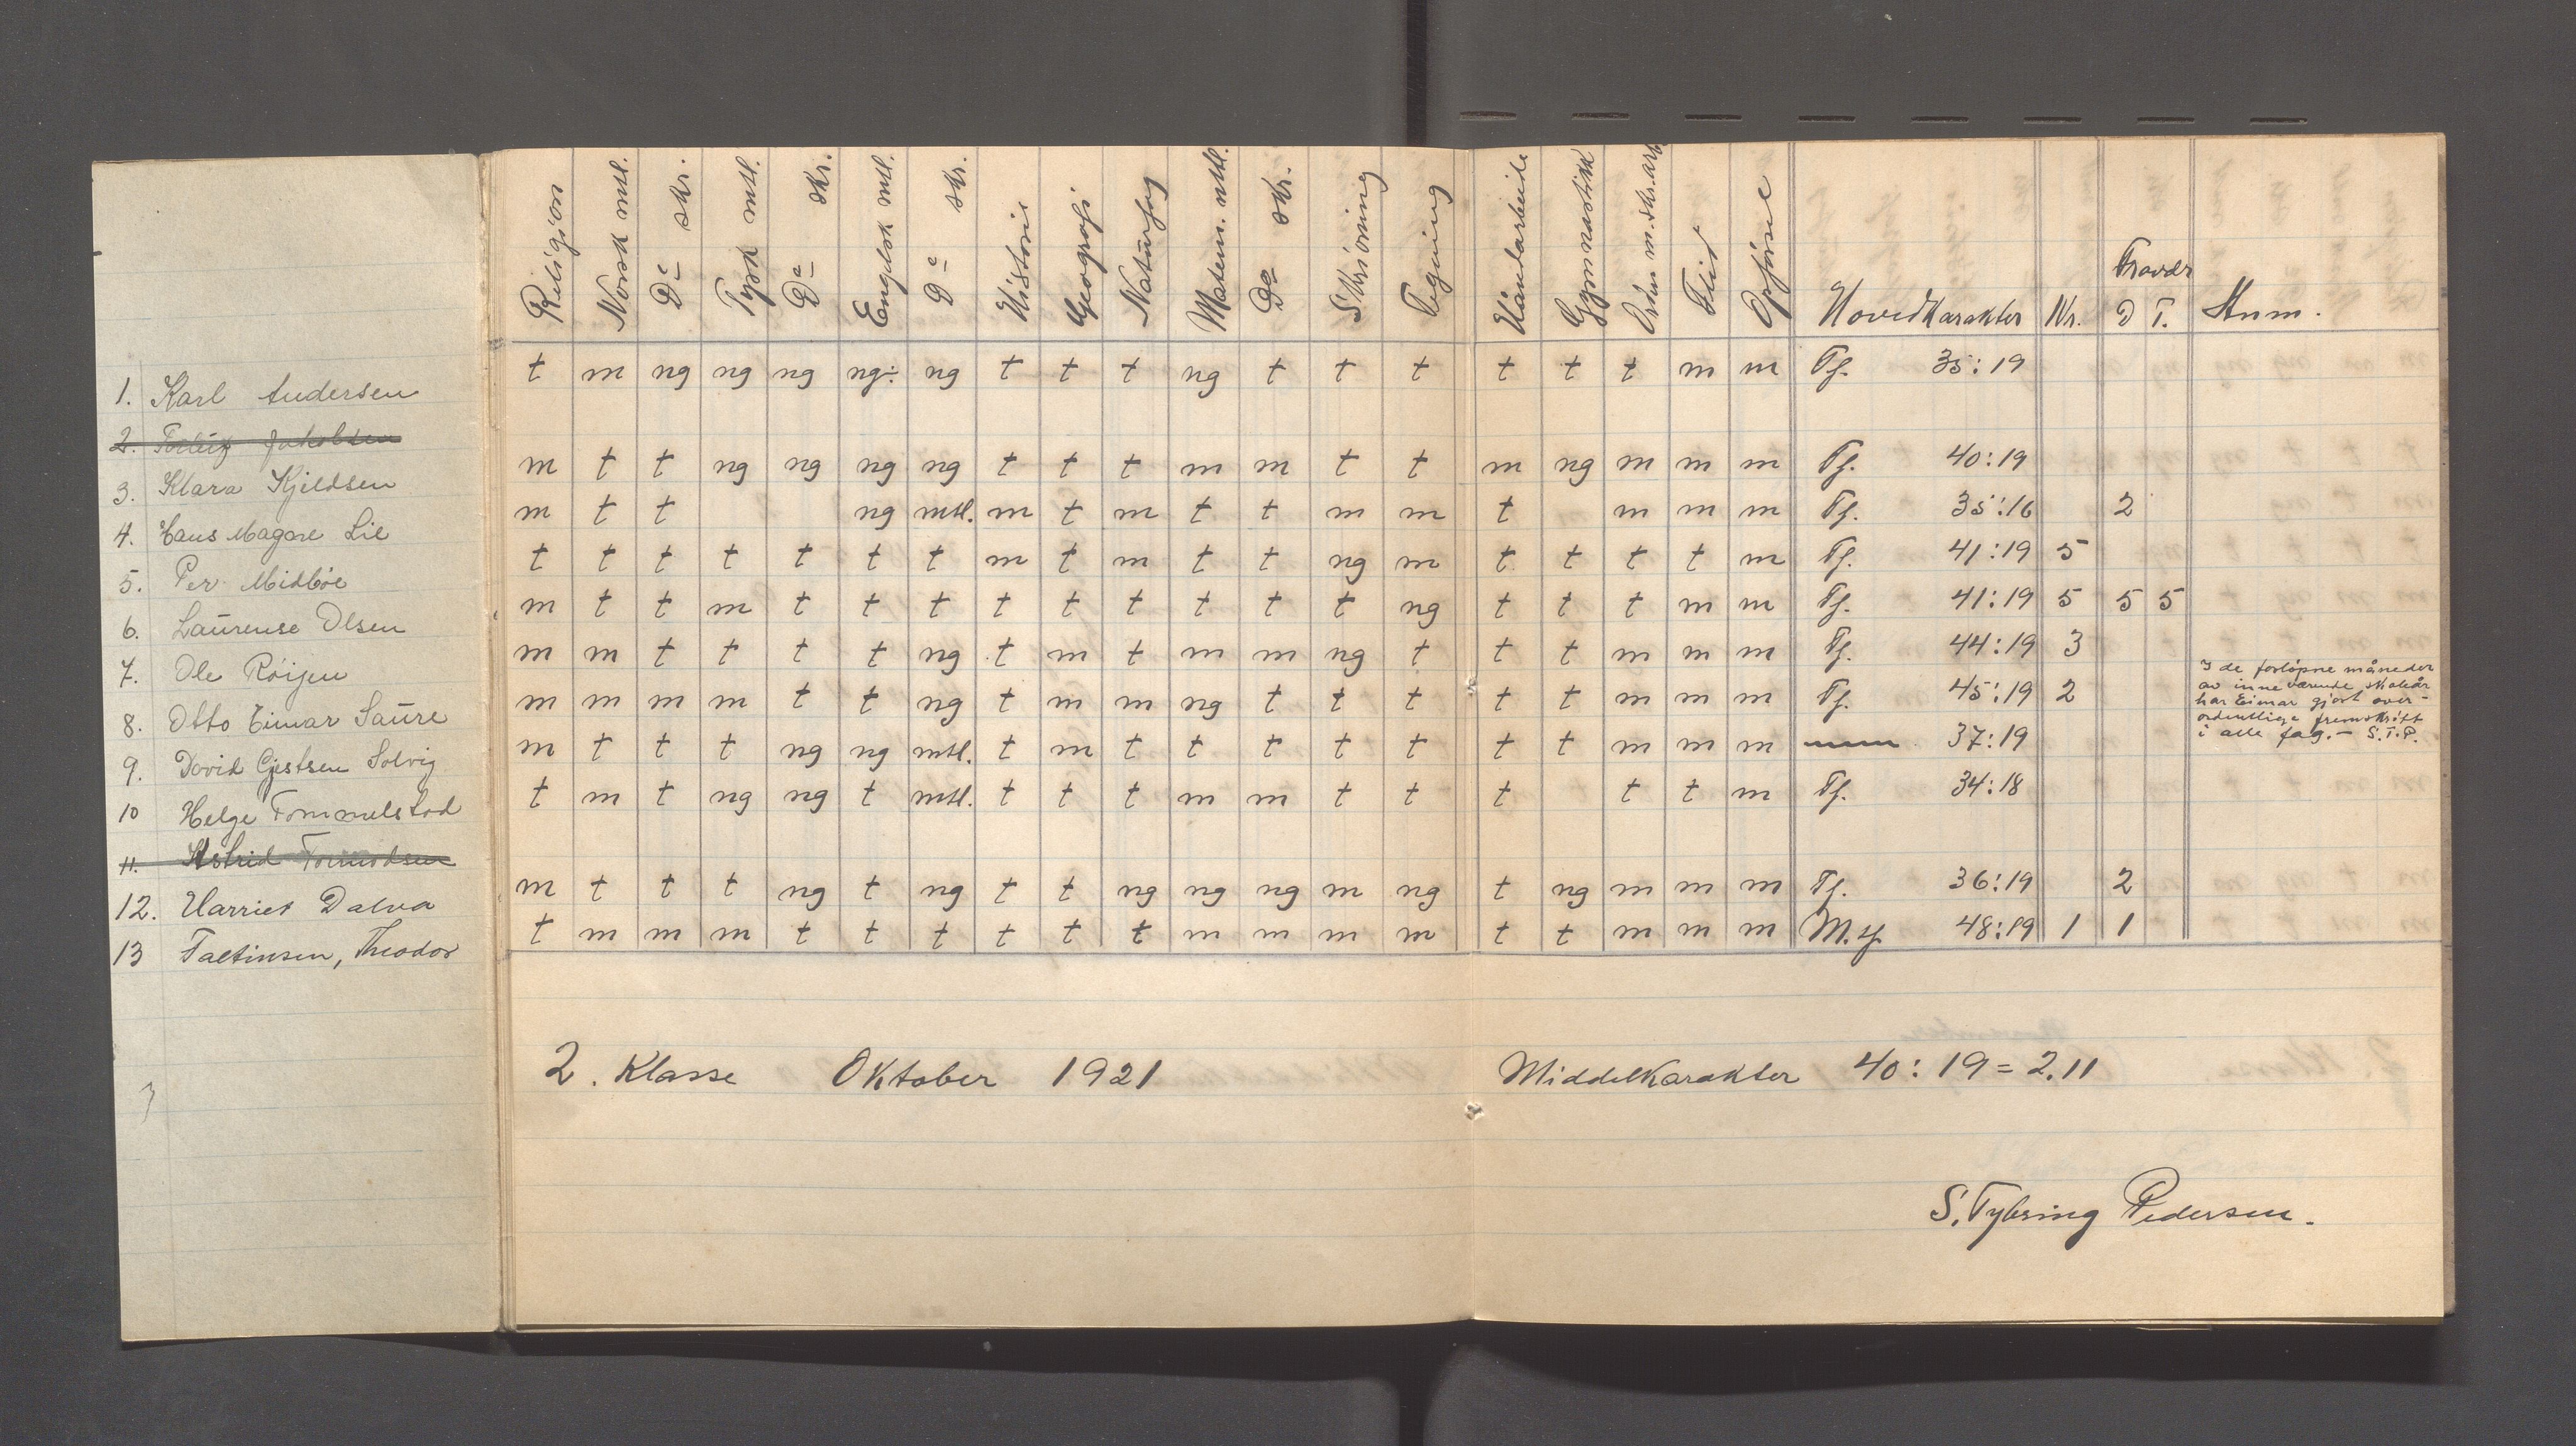 Religion Norsk mtl. Do skr. Tysk mtl. Do skr. Engelsk mtl. Do skr. Historie Geografi Naturfag Matem. mtl. Do skr. Skrivning Tegning Håndarbeide Gymnastikk Orden m. skr. arb Flid Opførsel Hovedkarakter Nr. Fravær D T. Anm.
1. Karl Andersen t m ng ng ng ng ng t t t ng t t t t t t m m Tf. 35:19
2. Jakobsen
3. Klara Kjeldsen m t t ng ng ng ng t t t m m t t m ng m m m Tf. 40:19
4. Hans Magne Lie m t t ng mtl. m t m t t m m t m m m Tf. 35:16 2
5. Per Midbøe t t t t t t t m t m t t ng m t t t t m Tf. 41:19 5
6. Laurense Olsen m t t m t t t t t t t t t ng t t t m m Tf. 41:19 5 5 5
7. Ole Röijen m m t t t t ng t m t m m ng t t t m m m Tf. 44:19 3
8. Otto Eimar Saure m m m m t t ng t m m ng t t t t t m m m Tf. 45:19 2
I de forløpne måneder
av inneværende skoleår
har Eimar gjort over-
ordentlige fremskritt
i alle fag. - S.T.P.
9. David Gjestsen Solvig m t t t ng ng mtl. t m t t t t t t t m m m 37:19
10 Helge Tommelstad t m t ng ng t mtl. t t t m m t t t t t m Tf. 34:18
11. Astrid Tormodsen
12. Harriet Dalva m t t t ng t ng t t ng ng ng m ng t ng m m m Tf. 36:19 2
13 Taltinsen, Theodor t m m m t t t t t t m m m m t t m m m M.tf. 48:19 1 1
2. Klasse Oktober 1921
Middelkarakter 40:19 = 2.11
S. Tybring Pedersen.